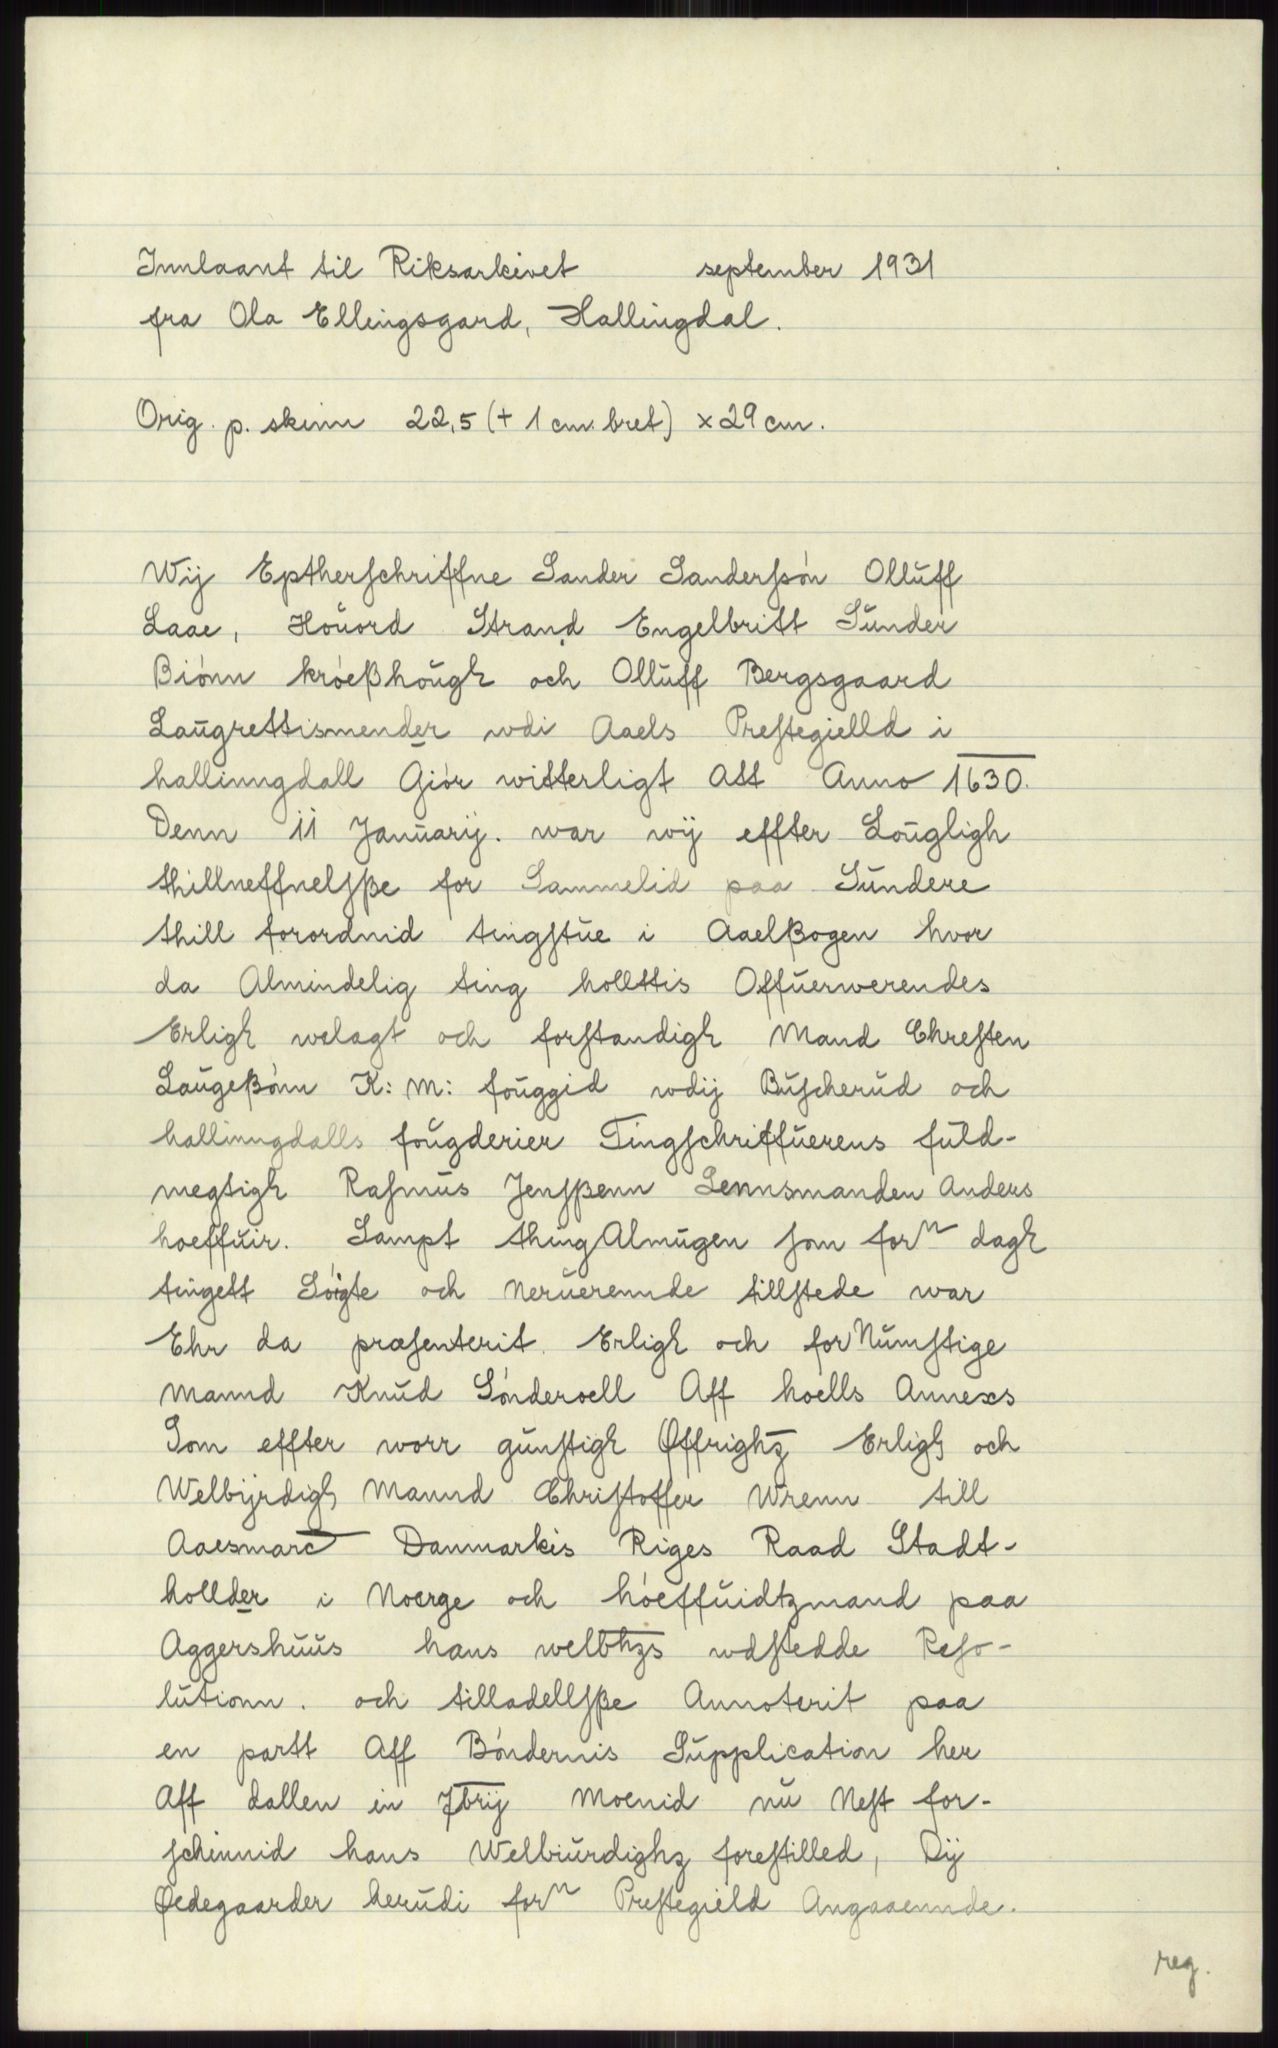 Innlaant til Riksarkivet september 1931
fra Ola Ellingsgard, Hallingdal.
Orig. p. skinn 22,5 (+ 1 cm. bret) x 29 cm.
Wij Eptherſchriffne Sander Sanderſsón Olluff
Laae, Houord Strand Engelbritt Sunder
Biónn króeßhough och Olluff Bergsgaard
Laugrettismender wdi Aaels Preſtegielld i
hallinngdall Giór witterligt Att Anno 1630.
Denn 11 Januarij. war wij effter Lougligh
thillneffnelſße for Sammelid paa Sundere
thill forordnid tingſtue i Aaelßogen hvor
da Almindelig ting hollttis Offuerwerendes
Erligh welagt och forſtandigh Mand Chreſten
Laugeßónn K: M: fouggid wdij Buſcherud och
hallinngdalls fougderier Tingſchriffuerens fuld-
megtigh Raſmus Jenſßenn Lennsmanden Anders
hoeffuir. Sampt thingAlmugen ſom forn dagh
tingett Sóigte och Neruerennde tillſtede war
Ehr da præſenterit. Erligh och forNumſtige
Mannd Knud Sónderoell Aff hoells Annexs
Som effter worr gunſtigh Øffrighz Erligh och
Welbijrdigh Mannd Chriſtoffer Wrenn till
Aaesmarc Danmarkis Riges Raad Stadt-
hollder i Noerge och hóeffuidtzmand paa
Aggershuus hans welbhzs wdſtedde Reſo-
lutionn. och tilladellſße Annoterit paa
en partt Aff Bóndernis Supplication her
Aff dallen in 7brij Moenid nu Neſt for-
ſchinnid hans Welbiurdighz foreſtilled, Dij
Øedegaarder herudi forn Preſtegield Angaaennde.
reg.